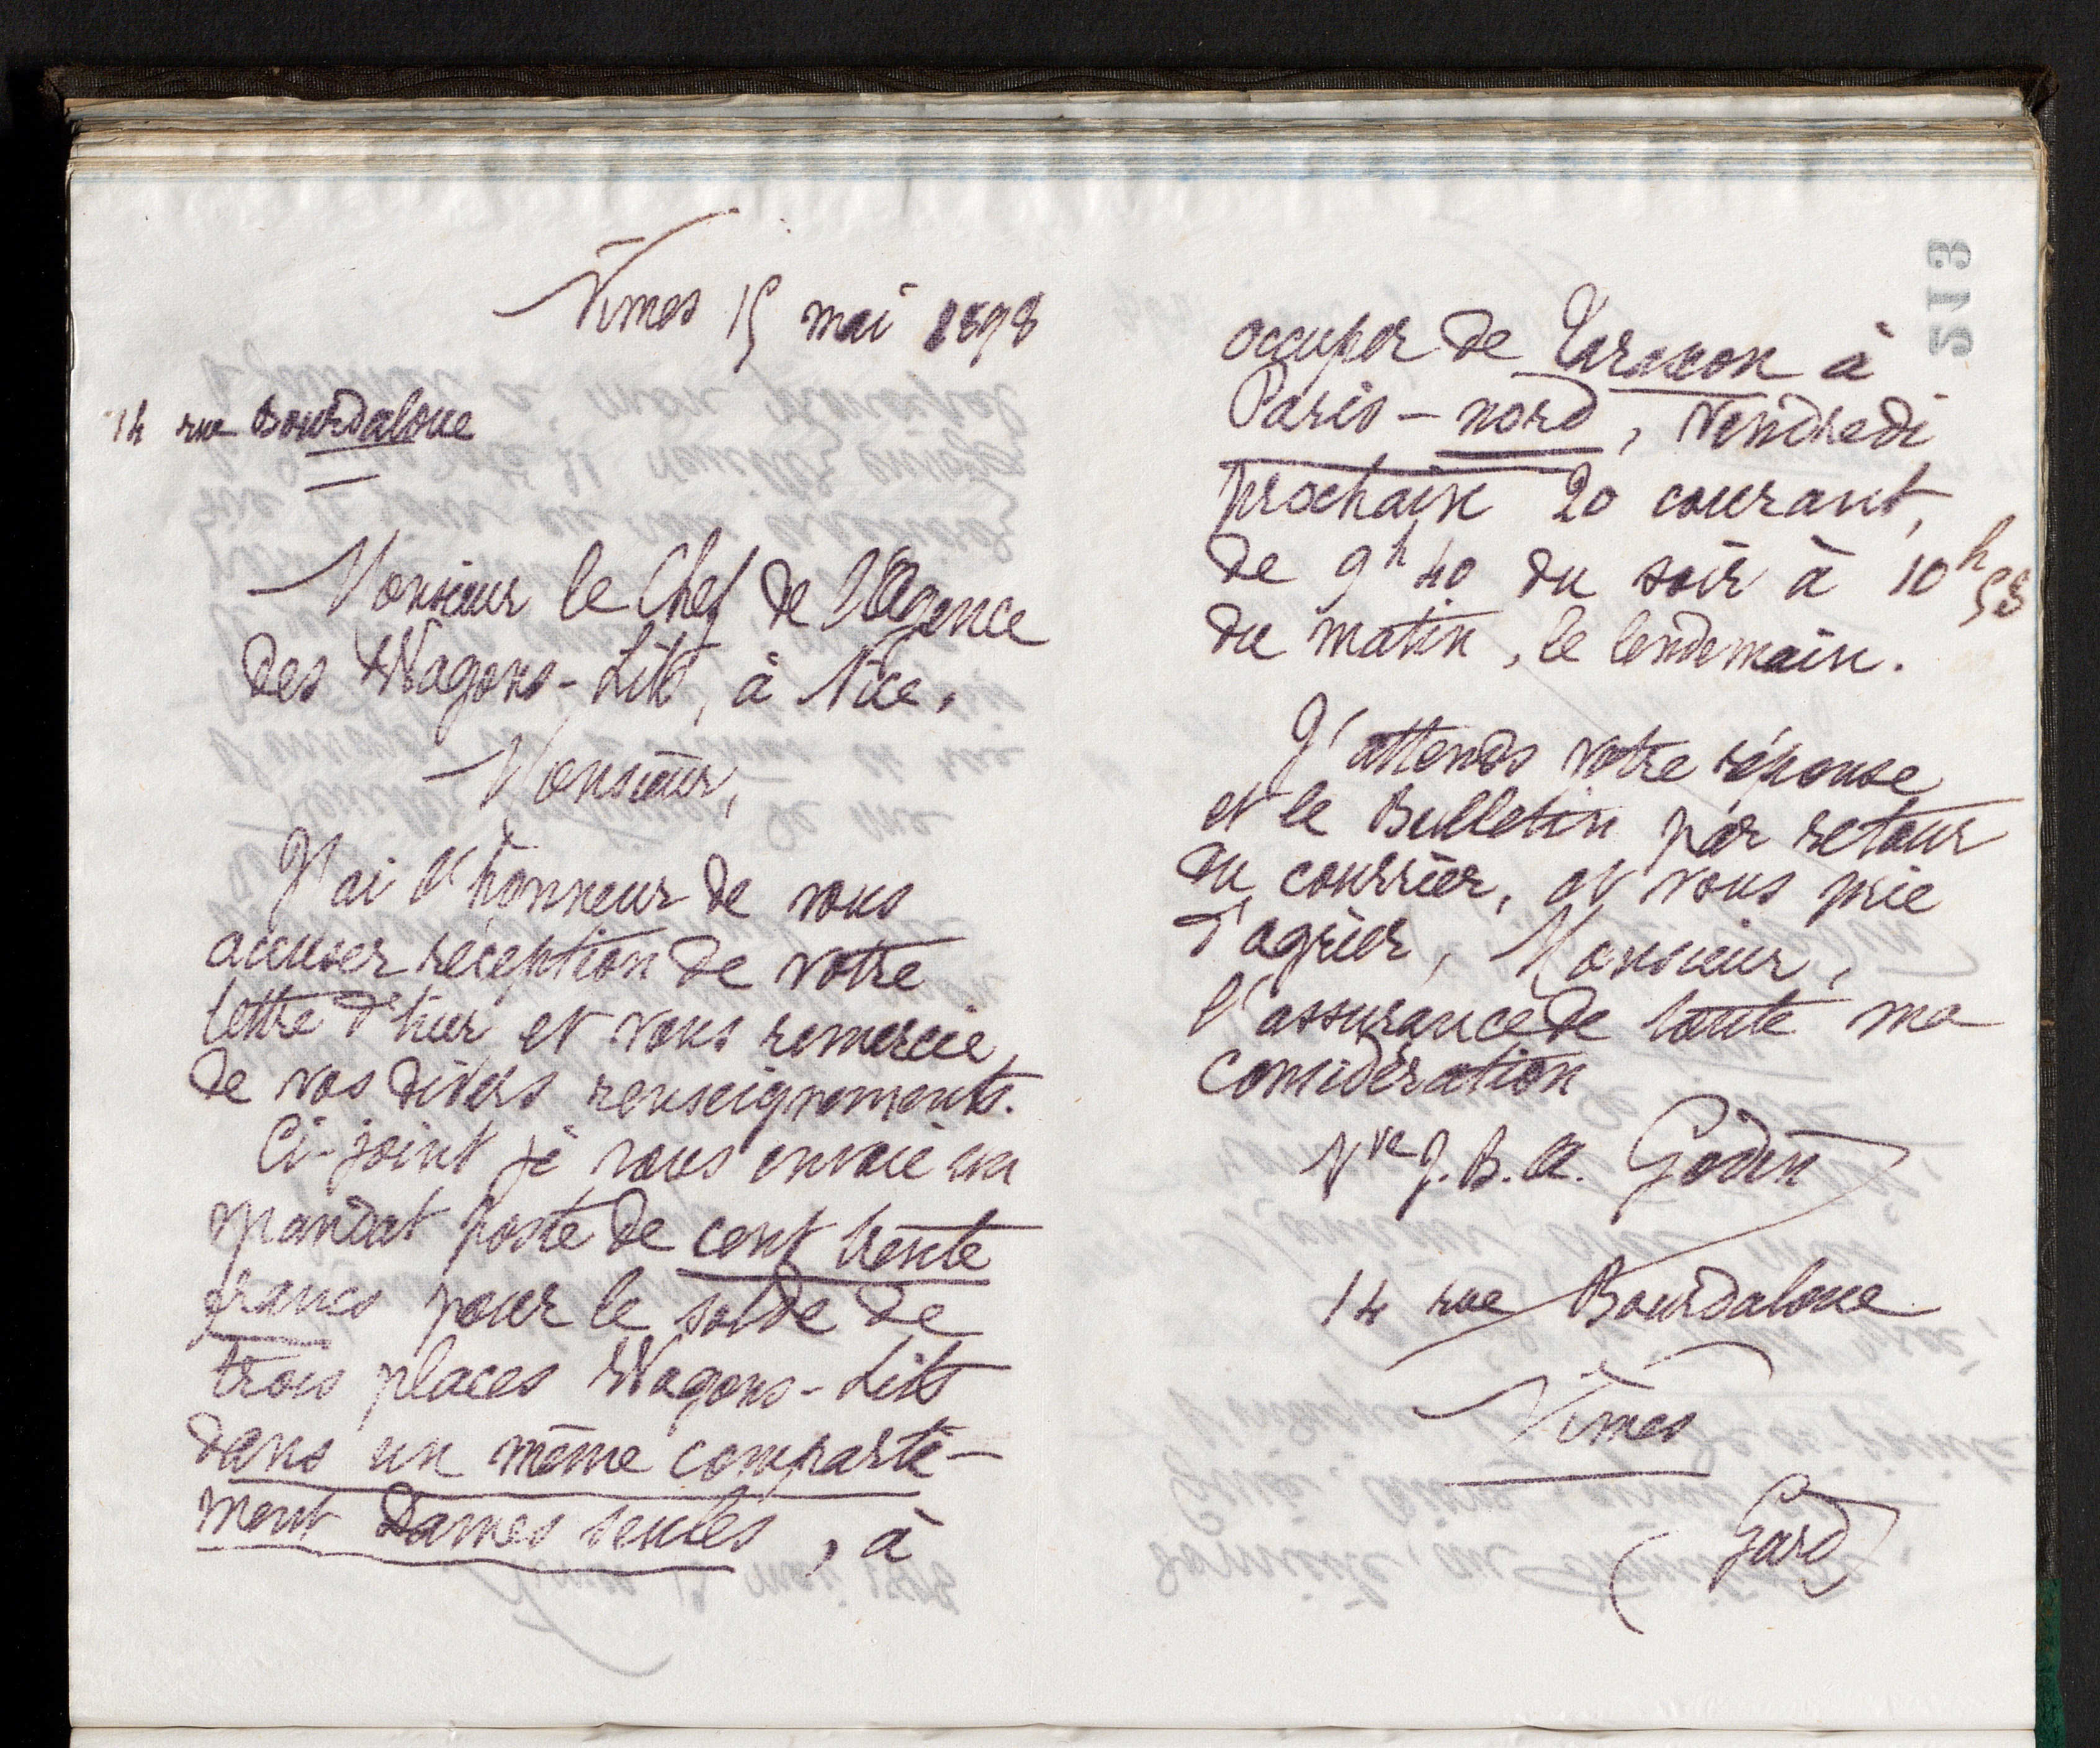 Nîmes 15 mai 1898
14 rue Bourdaloue
Monsieur le Chef de l'Agence
des Wagons-Lits, à Nice.
Monsieur,
J'ai l'honneur de vous
accuser réception de votre
lettre d'hier et vous remercie
de vos divers renseignements.
Ci-joint je vous envoie un
mandat poste de cent trente
francs pour le solde de
trois places Wagons-Lits
dans un même comparti-
ment Dames seules, à
513
occuper de Tarascon à
Paris-nord, Vendredi
prochain 20 courant,
de 9h40 du soir à 10h58
du matin, le lendemain.
J'attends votre réponse
et le Bulletin par retour
du courrier, et vous prie
d'agréer, Monsieur,
l'assurance de toute ma
considération
Vve J.B.A. Godin
14 rue Bourdaloue
Nîmes
(Gard)